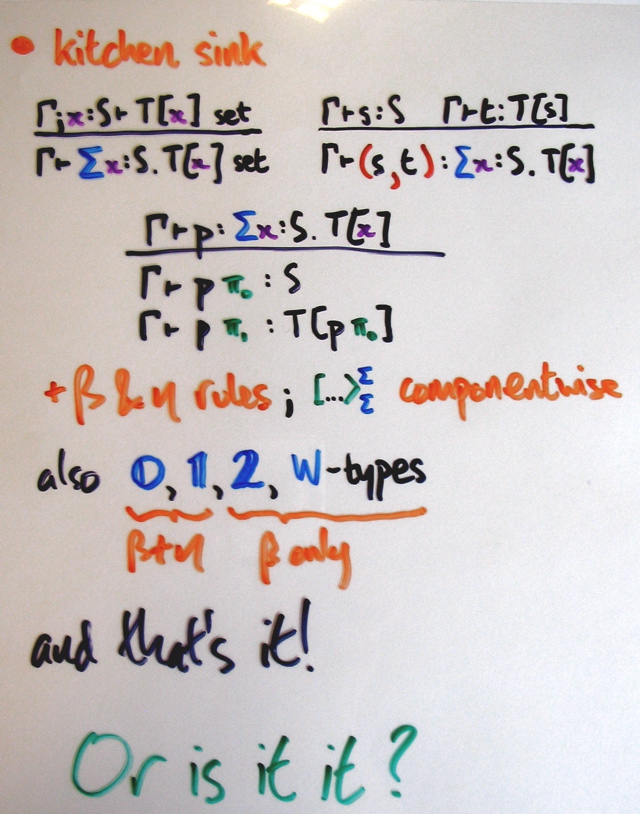 • kitchen sink
Γ;x:S⊢T[x] set
Γ⊢Σx:S.T[x] set
Γ⊢s:S Γ⊢t:T[s]
Γ⊢(s,t):Σx:S.T[x]
Γ⊢p:Σx:S.T[x]
Γ⊢pπ₀:S
Γ⊢pπ₁:T[pπ₀]
+β&η rules; [...⟩ΣΣ componentwise
also 0, 1, 2, W-types
β+η β only
and that's it!
Or is it it?